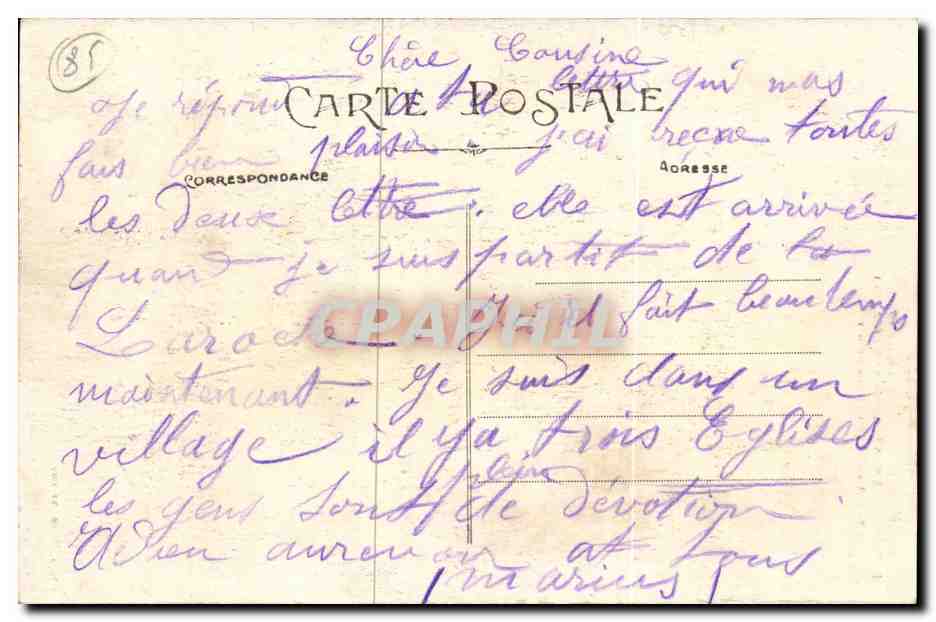 85
Chère Cousine
Je répons a ta lettre qui mas
CARTE POSTALE
fais bien plaisir j'ai reçue toutes
CORRESPONDANCE
ADRESSE
les deux lettre. elle est arrivée
quand je suis partit de la
Laroche Il fait beau temps
CPAPHIL
maintenant. Je suis dans un
village il ya trois Eglises
les gens sont plein de dévotion
Adieu aurevoir at tous
Marius